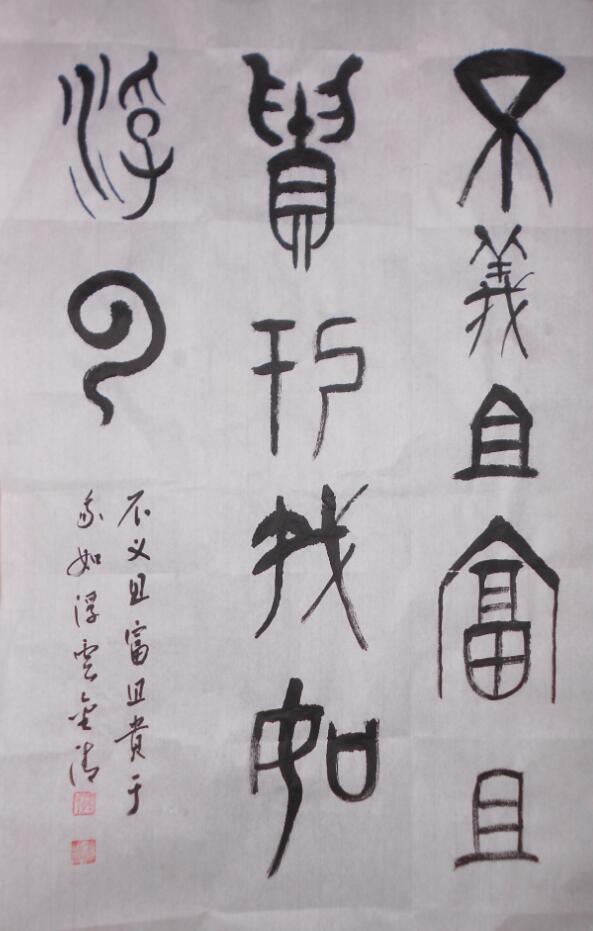 不義且富且
貴于我如
浮云
不义且富且貴于
我如浮雲金